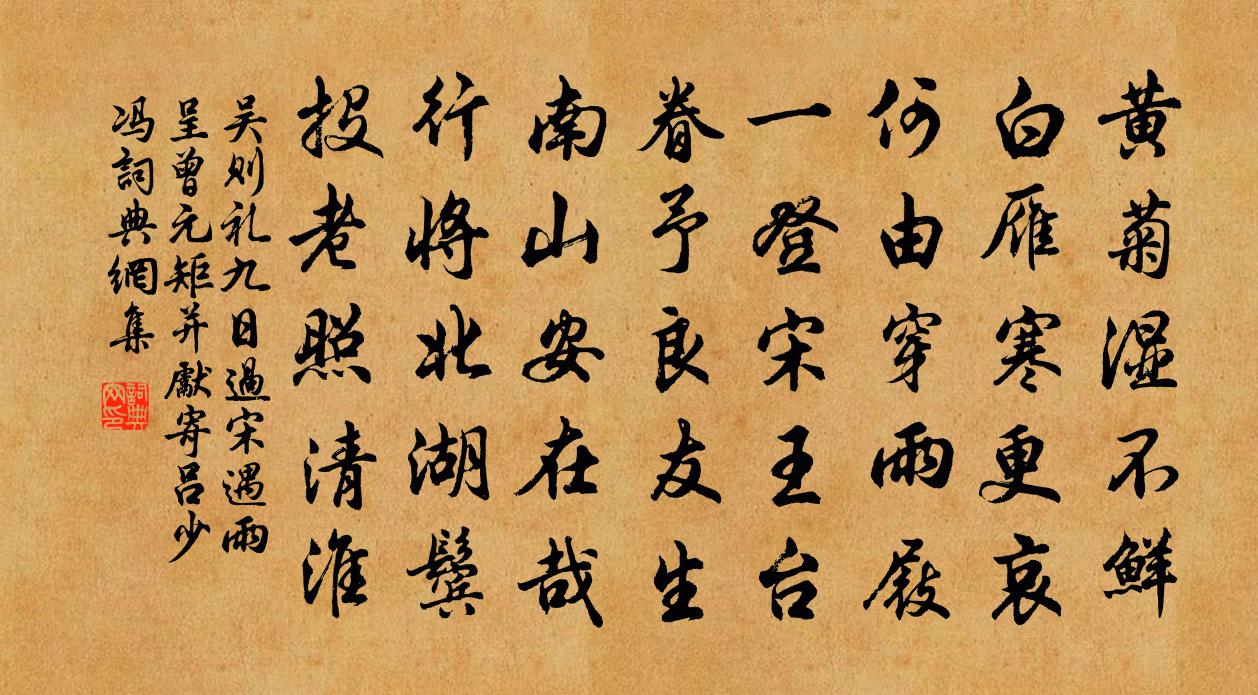 黄菊湿不鲜
白雁寒更哀
何由穿雨屐
一登宋王台
眷予良友生
南山安在哉
行将北湖鬓
投老照清淮
吴则礼九日過宋遇雨
呈曾元矩并獻寄吕少
冯詞典網集
詞典网印